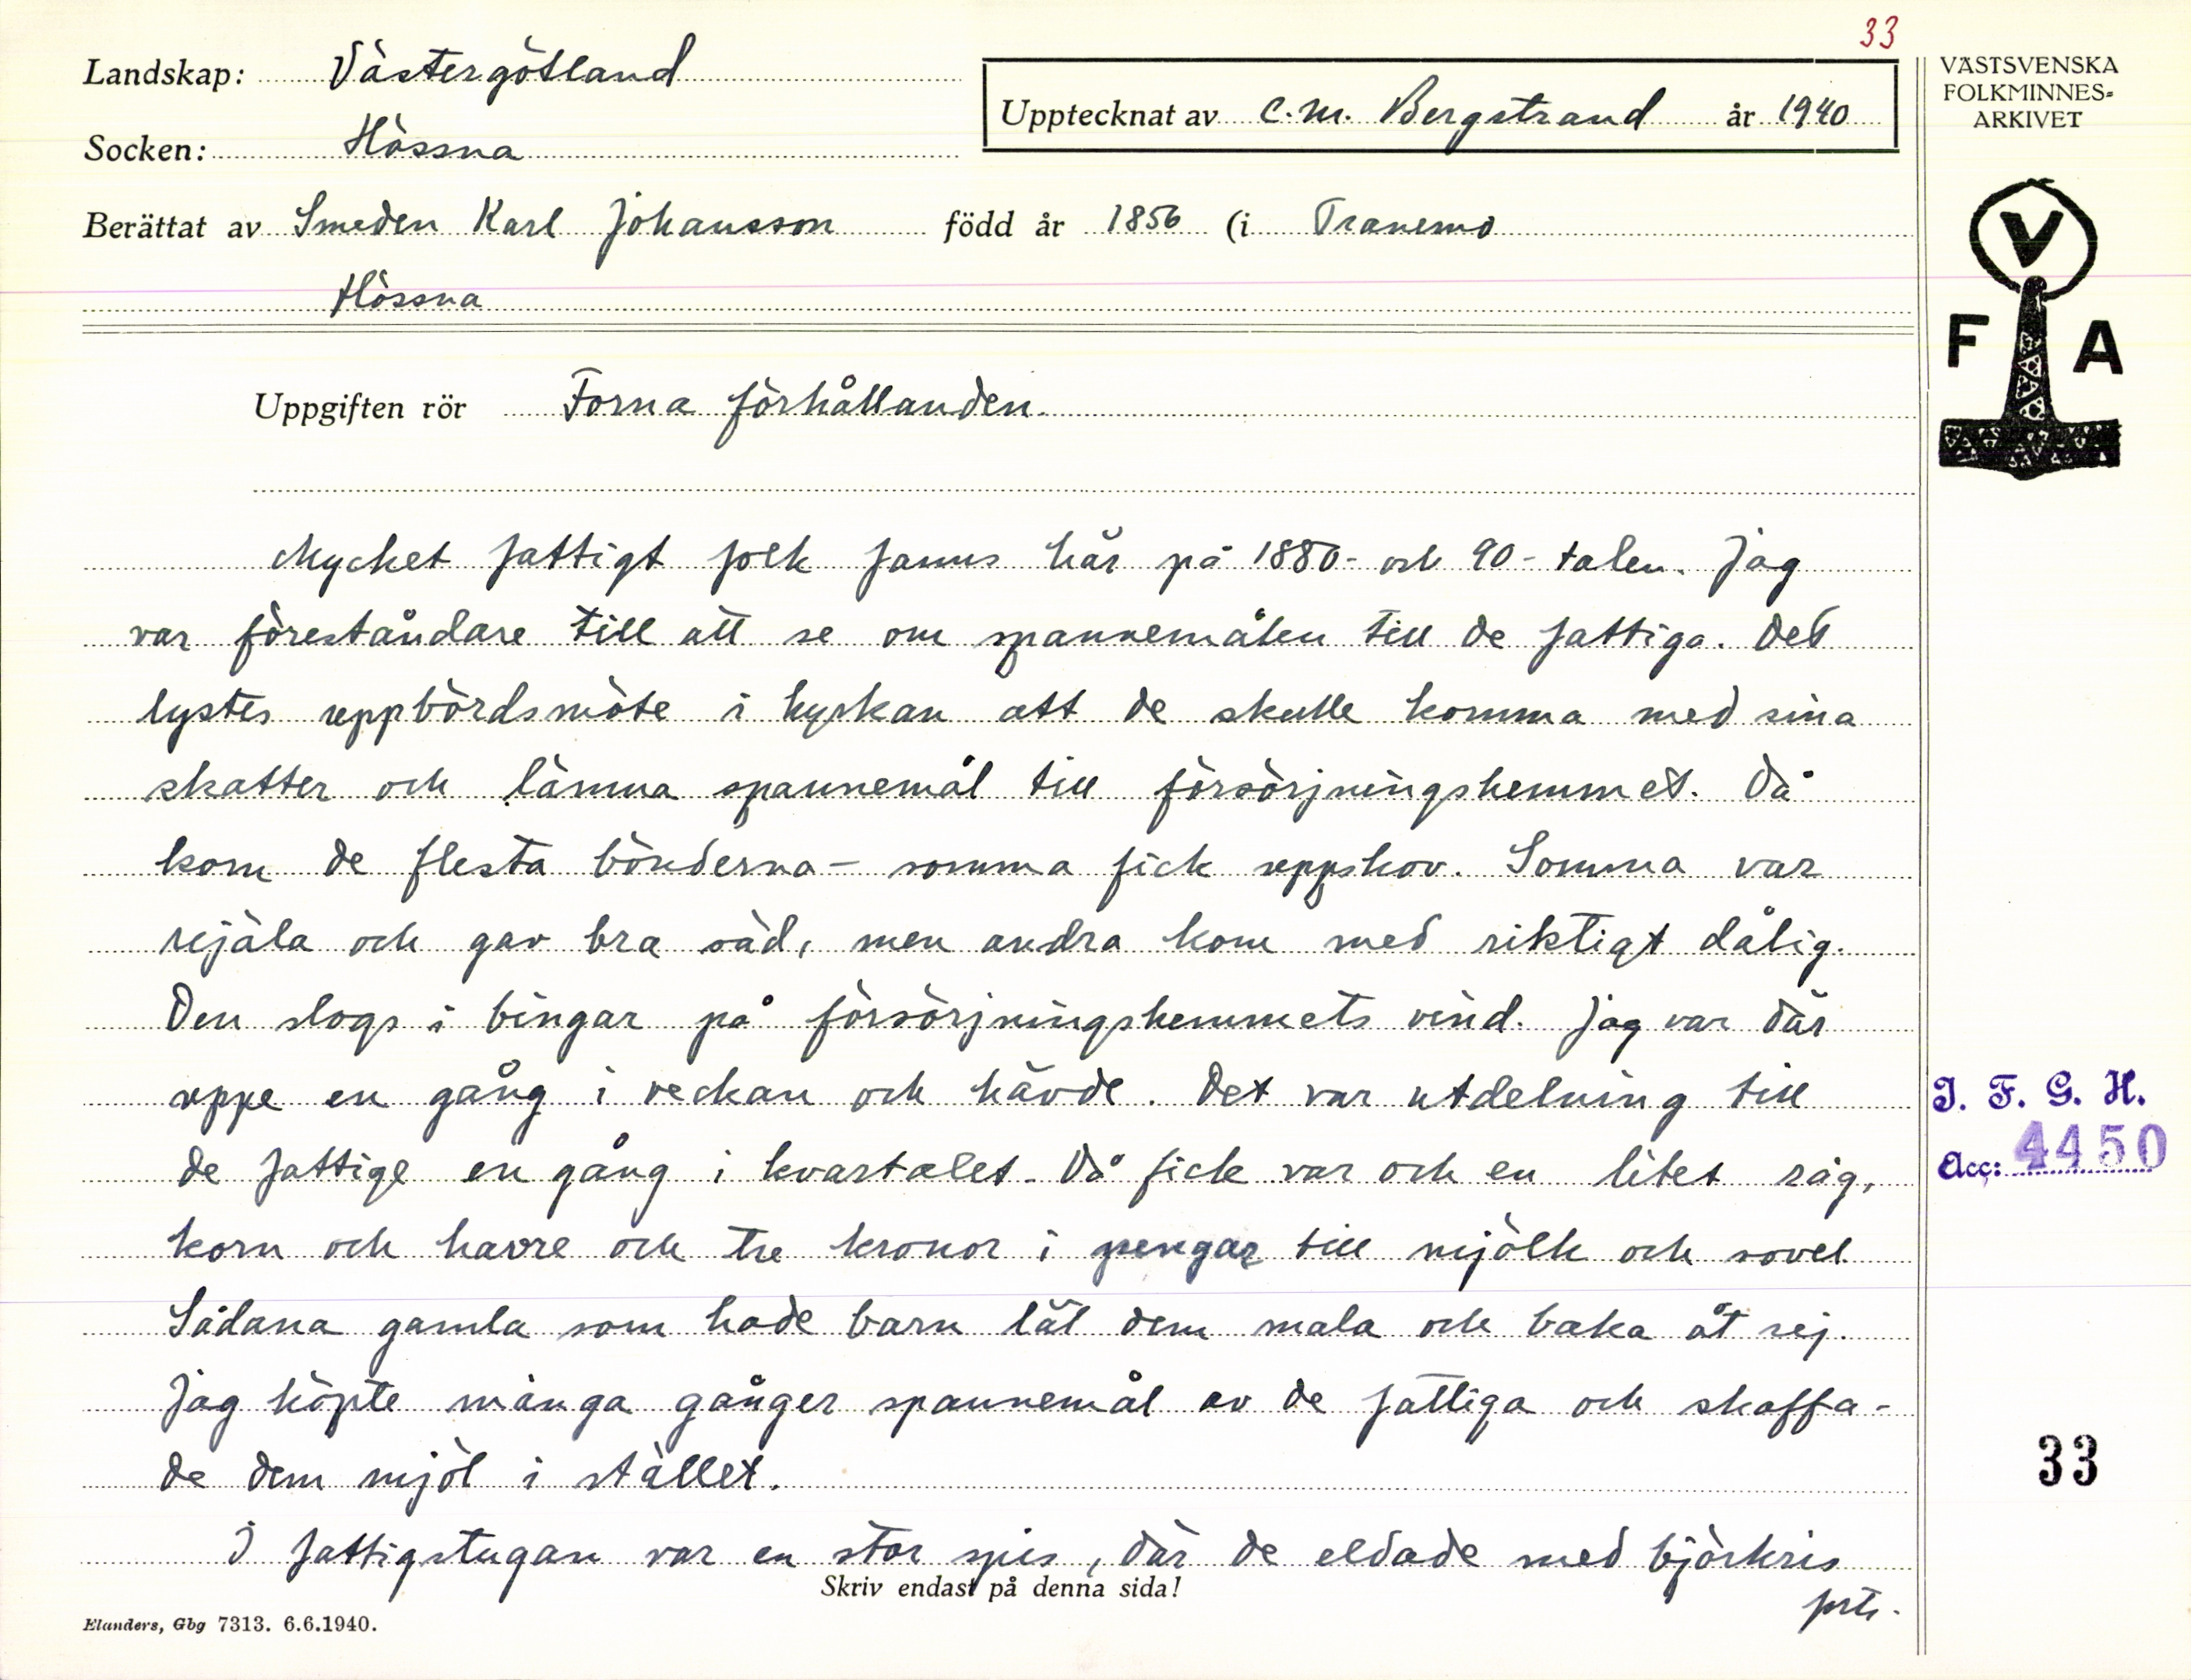 33
Landskap: Västergötland
Socken: Hössna
Upptecknat av C.M. Bergstrand år 1940
Berättat av Smeden Karl Johansson född år 1856 (i Tranemo
Hössna
VÄSTSVENSKA
FOLKMINNES-
ARKIVET
V
F A
Uppgiften rör Forna förhållanden.
Mycket fattigt folk fanns här på 1880- och 90-talen. Jag
var föreståndare till att se om spannemålen till de fattiga. Det
lystes uppbördsmöte i kyrkan att de skulle komma med sina
skatter och lämna spannemål till försörjningshemmet. Då
kom de flesta bönderna - somma fick uppskov. Somma var
rejäla och gav bra säd, men andra kom med riktigt dålig.
Den slogs i bingar på försörjningshemmets vind. Jag var där
uppe en gång i veckan och hävde. Det var utdelning till
de fattige en gång i kvartalet. Då fick var och en litet råg,
korn och havre och tre kronor i pengar till mjölk och sovel
Sådana gamla som hade barn lät dem mala och baka åt sej.
Jag köpte många gånger spannemål av de fattiga och skaffa-
de dem mjöl i stället.
I fattigstugan var en stor spis, där de eldade med björkris
forts.
Skriv endast på denna sida!
Elanders, Gbg 7313. 6.6.1940.
I. F. G. H.
Acc: 4450
33